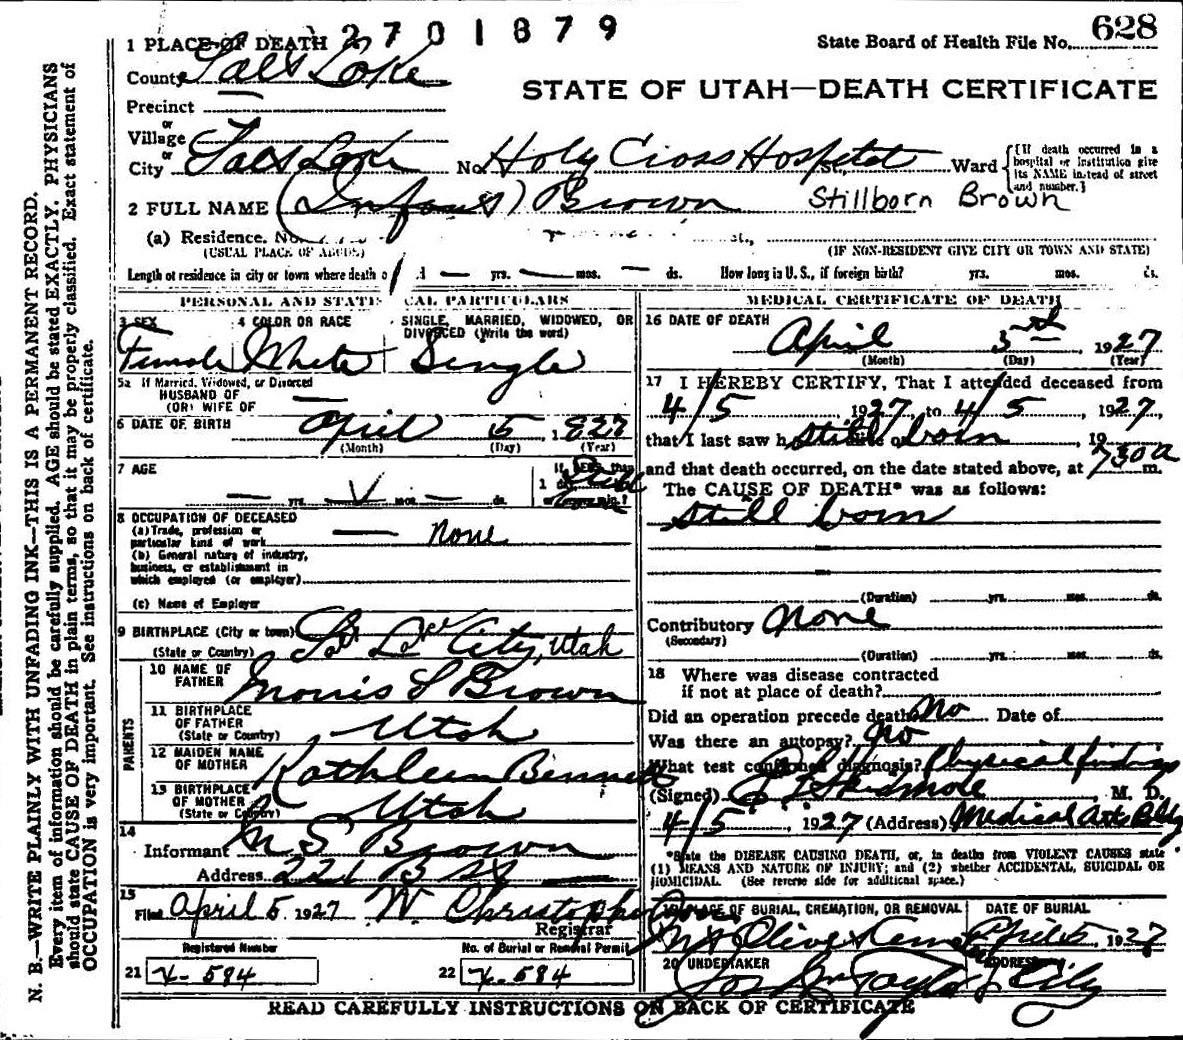 2701879
628
1 PLACE OF DEATH
State Board of Health File No.
County Salt Lake
STATE OF UTAH—DEATH CERTIFICATE
Precinct
or
Village
or
City Salt Lake No. Holy Cross Hospital St., Ward {[If death occurred in a hospital or institution give its NAME instead of street and number.]
2 FULL NAME (Infant) Brown Stillborn Brown
(a) Residence. No. St.,
(USUAL PLACE OF ABODE) (IF NON-RESIDENT GIVE CITY OR TOWN AND STATE)
Length of residence in city or town where death — yrs. — mos. — ds. How long in U. S., if foreign birth? yrs. mos. ds.
PERSONAL AND STATISTICAL PARTICULARS
3 SEX 4 COLOR OR RACE SINGLE, MARRIED, WIDOWED, OR DIVORCED (Write the word)
Female White Single
5a If Married, Widowed, or Divorced
HUSBAND OF
(OR) WIFE OF —
6 DATE OF BIRTH April 5, 1927
(Month) (Day) (Year)
7 AGE
— yrs. mos. — ds.
8 OCCUPATION OF DECEASED
(a) Trade, profession or particular kind of work — none
(b) General nature of industry, business, or establishment in which employed (or employer)
(c) Name of Employer
9 BIRTHPLACE (City or town) Salt Lake City, Utah
(State or Country)
PARENTS
10 NAME OF FATHER Morris S Brown
11 BIRTHPLACE OF FATHER (State or Country) Utah
12 MAIDEN NAME OF MOTHER Kathleen Bennett
13 BIRTHPLACE OF MOTHER (State or Country) Utah
14
Informant M S Brown
Address 221 B St
15
Filed April 5 1927 W. Christopherson
Registrar
Registered Number No. of Burial or Removal Permit
21 X-584 22 X-584
MEDICAL CERTIFICATE OF DEATH
16 DATE OF DEATH
April 5th 1927
(Month) (Day) (Year)
17 I HEREBY CERTIFY, That I attended deceased from
4/5, 1927, to 4/5, 1927,
that I last saw h still born, 19
and that death occurred, on the date stated above, at 730a m.
The CAUSE OF DEATH* was as follows:
still born
(Duration) yrs. mos. ds.
Contributory none
(Secondary)
(Duration) yrs. mos. ds.
18 Where was disease contracted
if not at place of death?
Did an operation precede death? No Date of
Was there an autopsy? No
What test confirmed diagnosis? Physical findings
(Signed) Skidmore, M. D.
4/5, 1927 (Address) Medical Arts Bldg
*State the DISEASE CAUSING DEATH, or, in deaths from VIOLENT CAUSES state
(1) MEANS AND NATURE OF INJURY; and (2) whether ACCIDENTAL, SUICIDAL OR
HOMICIDAL. (See reverse side for additional space.)
PLACE OF BURIAL, CREMATION, OR REMOVAL DATE OF BURIAL
Mt Olivet Cem April 5, 1927
20 UNDERTAKER ADDRESS
Jos Wm Taylor City
READ CAREFULLY INSTRUCTIONS ON BACK OF CERTIFICATE
N. B.—WRITE PLAINLY WITH UNFADING INK—THIS IS A PERMANENT RECORD.
Every item of information should be carefully supplied. AGE should be stated EXACTLY. PHYSICIANS
should state CAUSE OF DEATH in plain terms, so that it may be properly classified. Exact statement of
OCCUPATION is very important. See instructions on back of certificate.